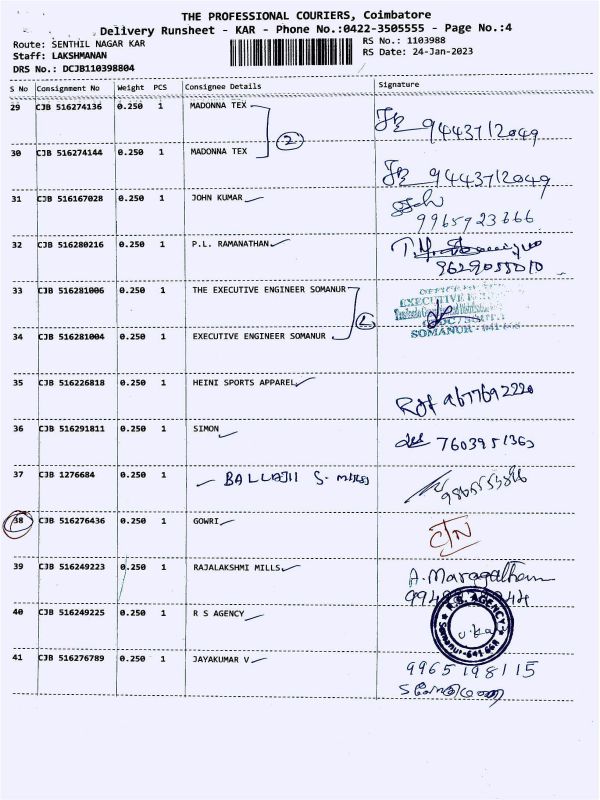 THE PROFESSIONAL COURIERS, Coimbatore
Delivery Runsheet - KAR - Phone No.:0422-3505555 - Page No.:4
Route: SENTHIL NAGAR KAR
RS No.: 1103988
Staff: LAKSHMANAN
RS Date: 24-Jan-2023
DRS No.: DCJB110398804
S No Consignment No Weight PCS Consignee Details Signature
29 CJB 516274136 0.250 1 MADONNA TEX 9443712049
2
30 CJB 516274144 0.250 1 MADONNA TEX 9443712049
31 CJB 516167028 0.250 1 JOHN KUMAR
9965923666
32 CJB 516280216 0.250 1 P.L. RAMANATHAN
33 CJB 516281006 0.250 1 THE EXECUTIVE ENGINEER SOMANUR
EXECUTIVE
SOMANUR
34 CJB 516281004 0.250 1 EXECUTIVE ENGINEER SOMANUR
35 CJB 516226818 0.250 1 HEINI SPORTS APPAREL
36 CJB 516291811 0.250 1 SIMON
37 CJB 1276684 0.250 1 BALLAJI S. MILLS
38 CJB 516276436 0.250 1 GOWRI
39 CJB 516249223 0.250 1 RAJALAKSHMI MILLS A. Maragatham
40 CJB 516249225 0.250 1 R S AGENCY
R.S. AGENCY
Somanur-641 668
41 CJB 516276789 0.250 1 JAYAKUMAR V 9965198115